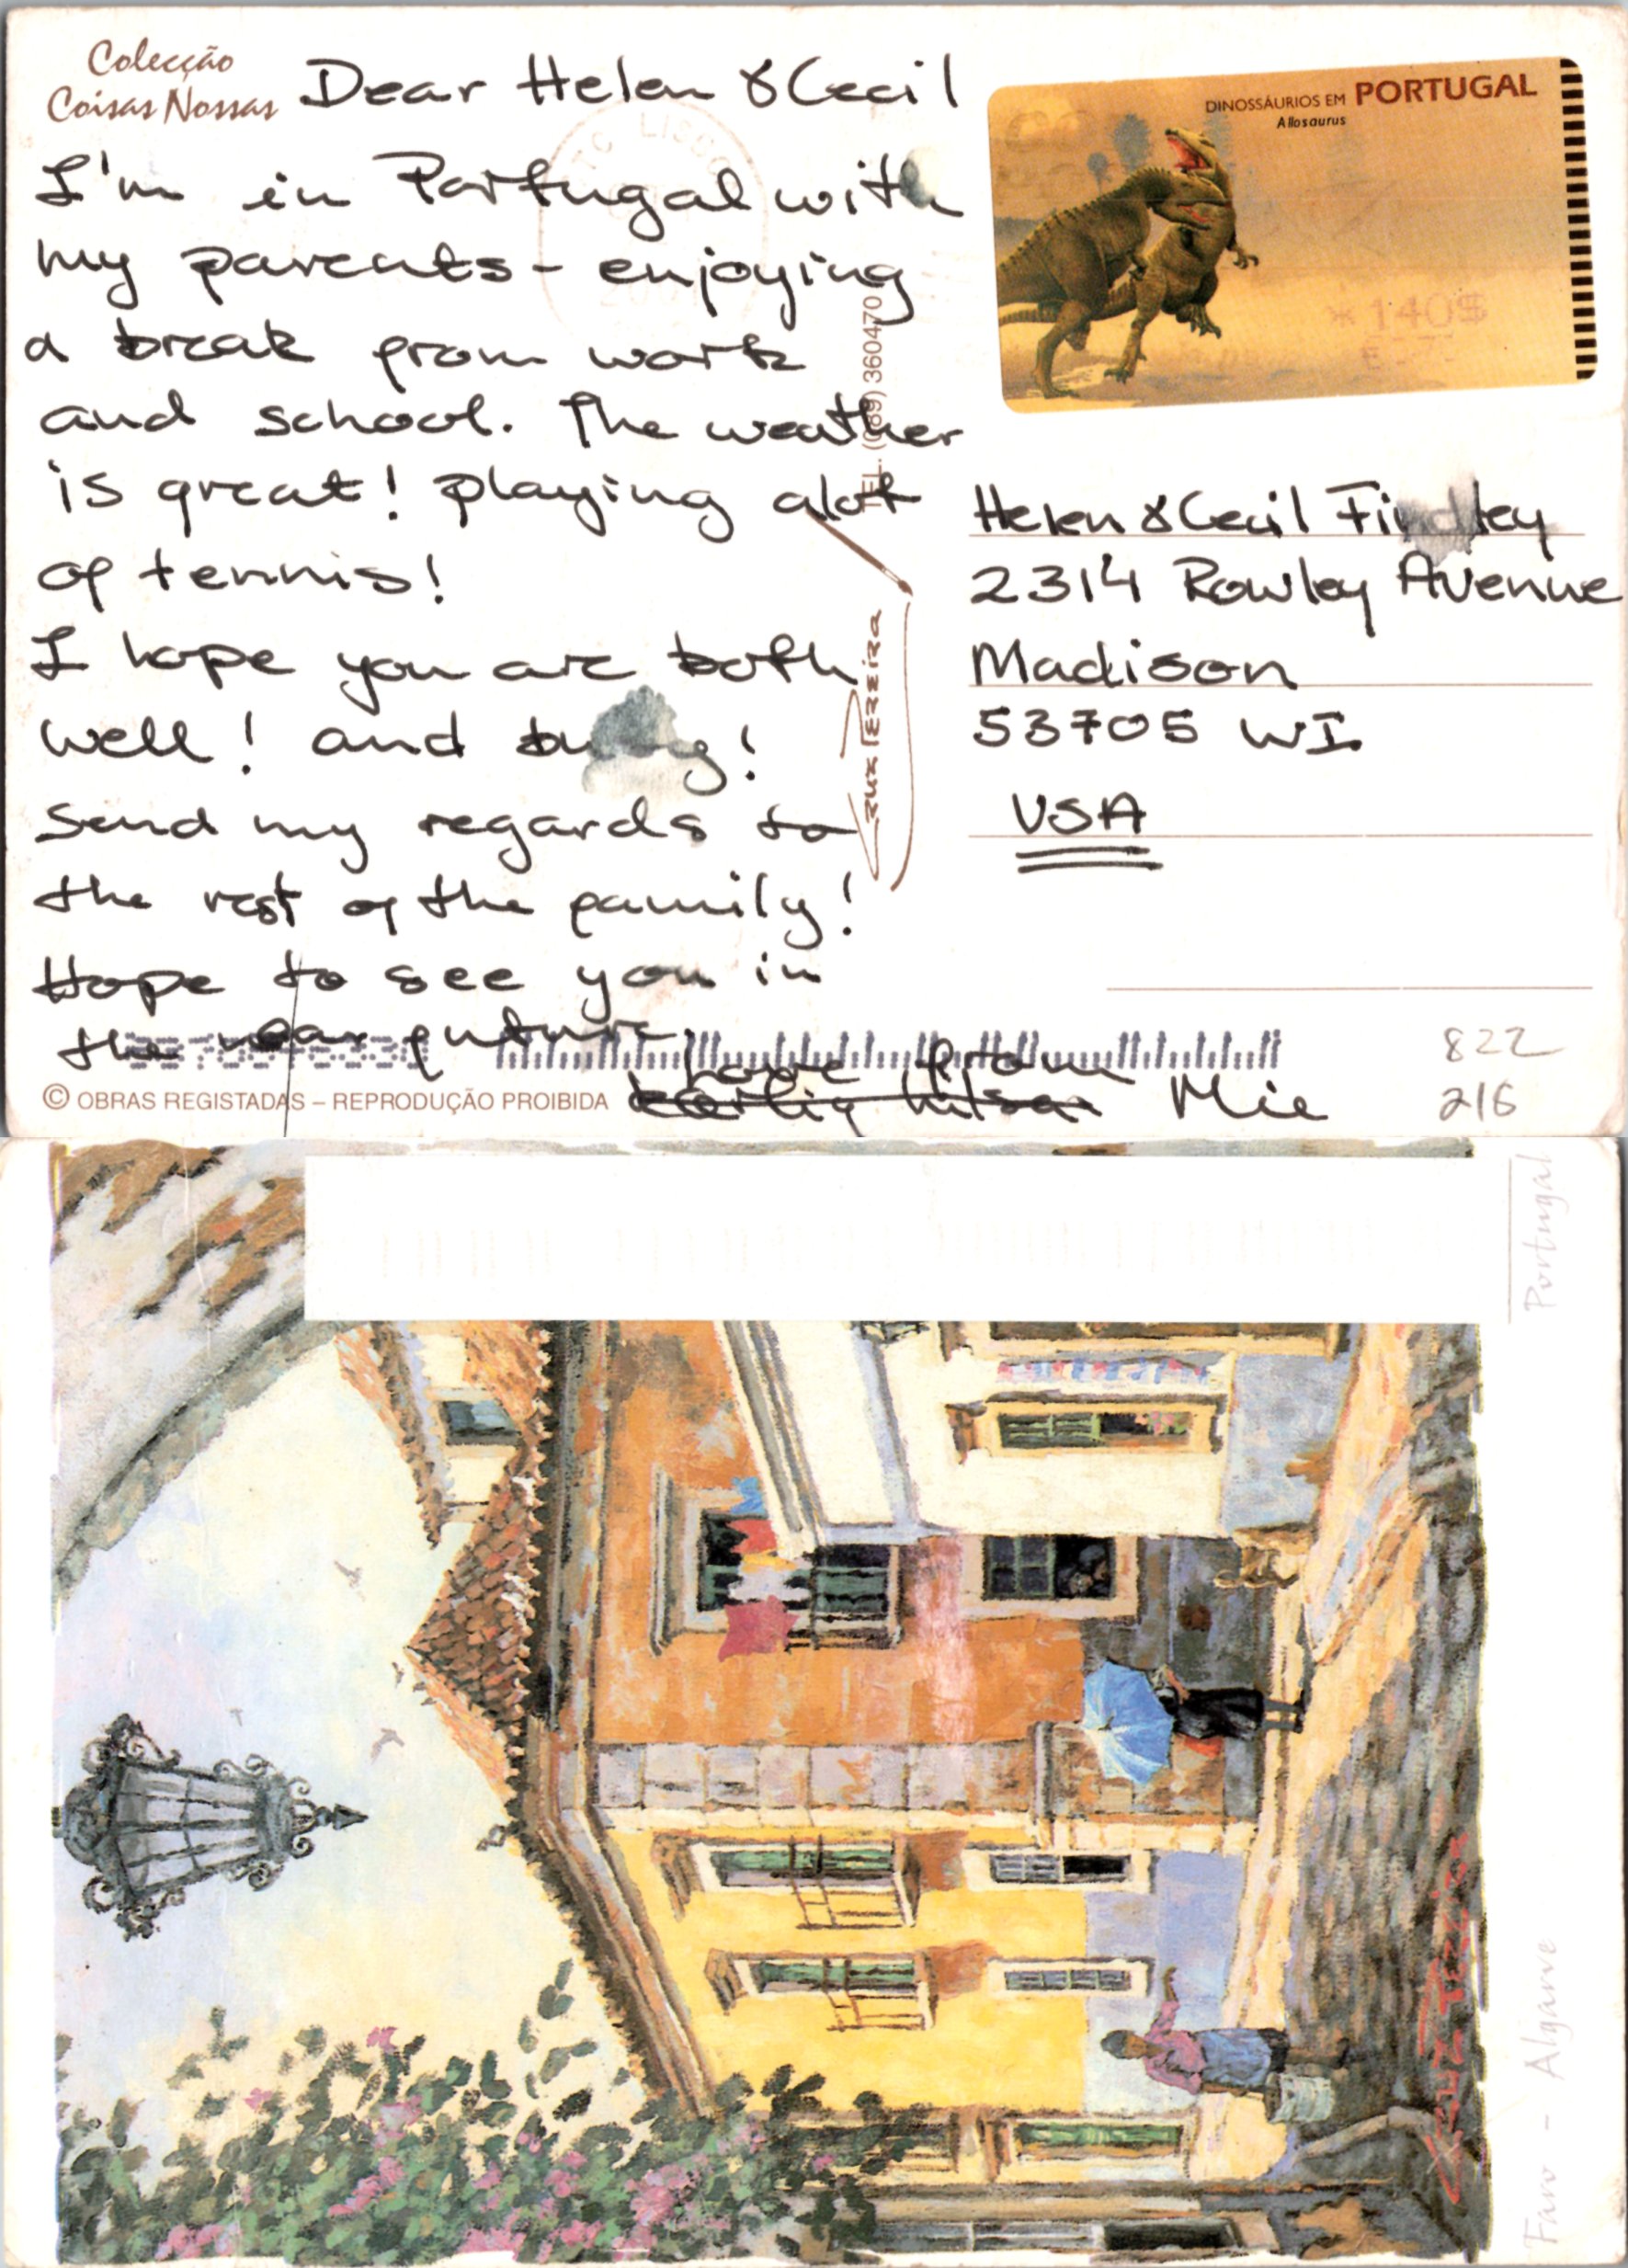 Colecção
Coisas Nossas
Dear Helen & Cecil
I'm in Portugal with
my parents - enjoying
a break from work
and school. The weather
is great! playing alot
of tennis!
I hope you are both
well! and busy!
Send my regards to
the rest of the family!
Hope to see you in
the near future,
love from
Mie
© OBRAS REGISTADAS – REPRODUÇÃO PROIBIDA
TEL. (089) 360470
Cruz Pereira
DINOSSÁURIOS EM PORTUGAL
Allosaurus
*140$
Helen & Cecil Findley
2314 Rowley Avenue
Madison
53705 WI.
USA
822
216
Portugal
Faro - Algarve
Cruz Pereira